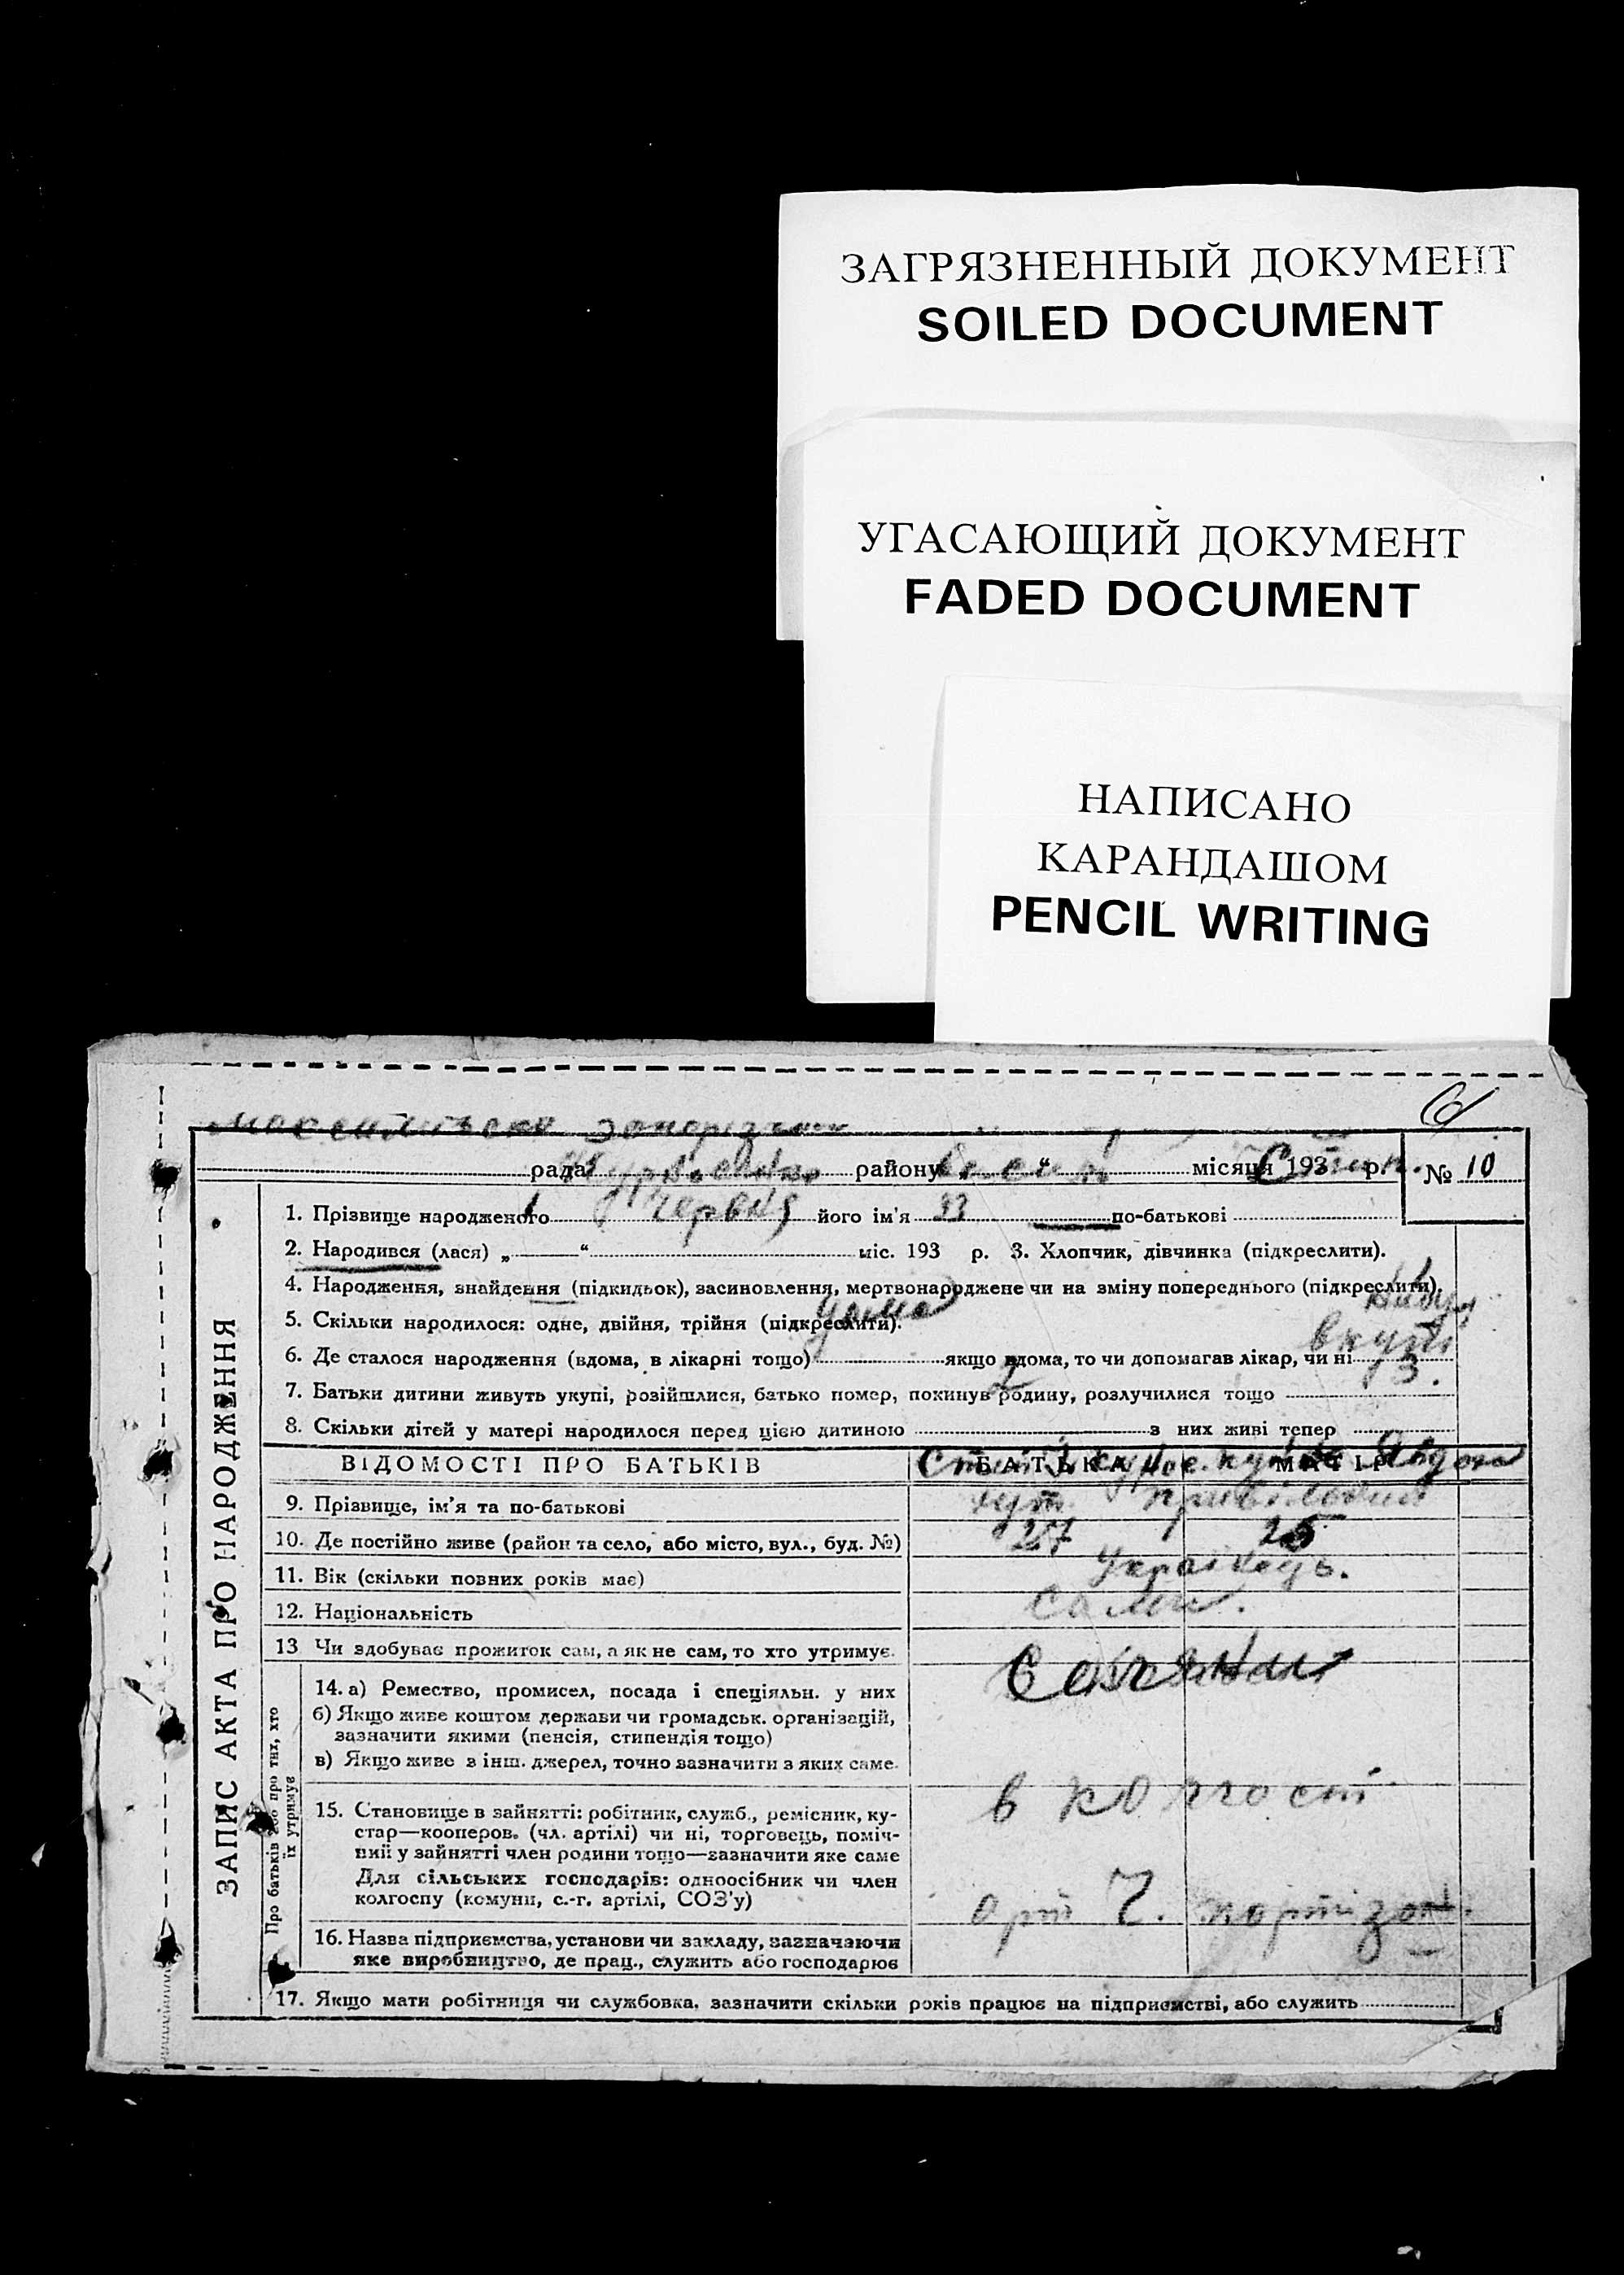 ЗАГРЯЗНЕННЫЙ ДОКУМЕНТ
SOILED DOCUMENT
УГАСАЮЩИЙ ДОКУМЕНТ
FADED DOCUMENT
НАПИСАНО
КАРАНДАШОМ
PENCIL WRITING
рада району “ місяця 193 р. № 10
1. Прізвище народженого його ім'я по-батькові
1 червня 33
2. Народився (лася) „ “ міс. 193 р. 3. Хлопчик, дівчинка (підкреслити).
4. Народження, знайдення (підкидьок), засиновлення, мертвонароджене чи на зміну попереднього (підкреслити).
5. Скільки народилося: одне, двійня, трійня (підкреслити).
6. Де сталося народження (вдома, в лікарні тощо) якщо вдома, то чи допомагав лікар, чи ні
вкупі
7. Батьки дитини живуть укупі, розійшлися, батько помер, покинув родину, розлучилися тощо
2 3.
8. Скільки дітей у матері народилося перед цією дитиною з них живі тепер
ЗАПИС АКТА ПРО НАРОДЖЕННЯ
ВІДОМОСТІ ПРО БАТЬКІВ БАТЬКА МАТІР
9. Прізвище, ім'я та по-батькові
27 25
10. Де постійно живе (район та село, або місто, вул., буд. №)
Українець.
11. Вік (скільки повних років має)
12. Національність
13 Чи здобуває прожиток сам, а як не сам, то хто утримує.
Про батьків або про тих, хто
їх утримує
14. а) Ремество, промисел, посада і спеціяльн. у них
б) Якщо живе коштом держави чи громадськ. організацій,
зазначити якими (пенсія, стипендія тощо)
в) Якщо живе з інш. джерел, точно зазначити з яких саме.
15. Становище в зайнятті: робітник, служб., ремісник, ку-
стар—кооперов. (чл. артілі) чи ні, торговець, поміч-
ний у зайнятті член родини тощо—зазначити яке саме
Для сільських господарів: одноосібник чи член
колгоспу (комуни, с.-г. артілі, СОЗ'у)
16. Назва підприємства, установи чи закладу, зазначаючи
яке виробництво, де прац., служить або господарює
17. Якщо мати робітниця чи службовка, зазначити скільки років працює на підприємстві, або служить